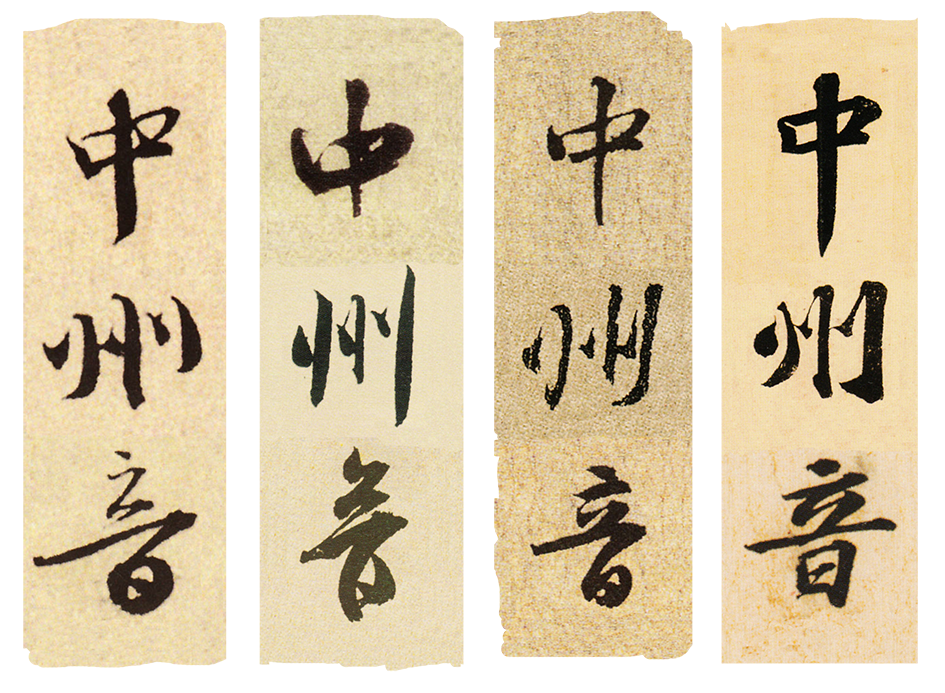 中州音
中州音
中州音
中州音